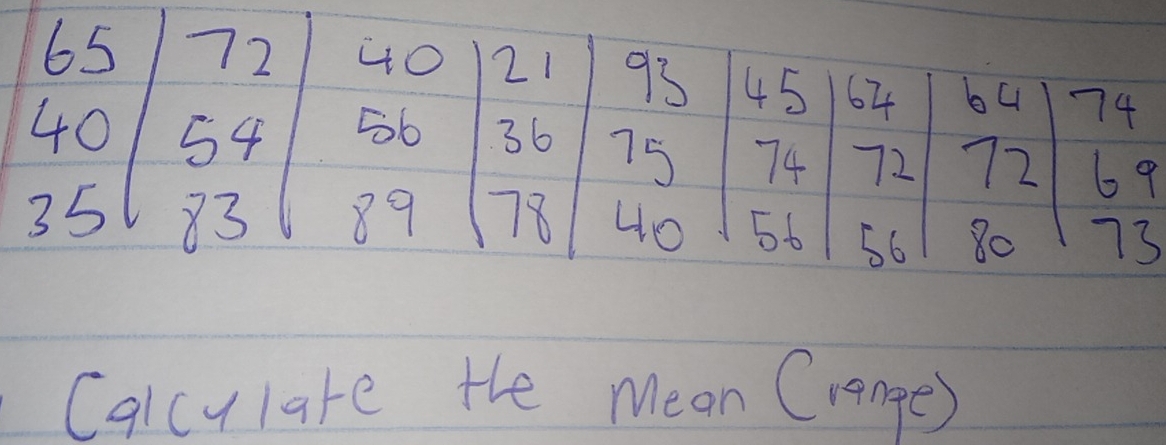 65 | 72 | 40 | 21 | 93 | 45 | 64 | 64 | 74
40 | 54 | 56 | 36 | 75 | 74 | 72 | 72 | 69
35 | 83 | 89 | 78 | 40 | 56 | 56 | 80 | 73
Calculate the Mean (range)